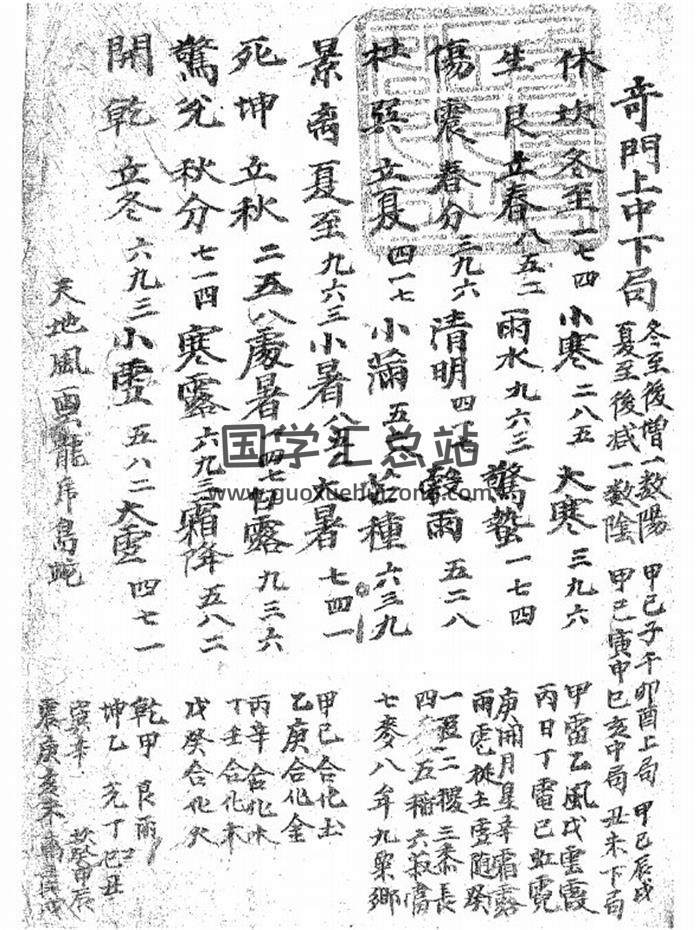 奇門上中下局
冬至後增一数陽
夏至後减一数陰
甲己子午卯酉上局 甲己辰戌
甲己寅申巳亥中局 丑未下局
休坎冬至一七四小寒二八五大寒三九六
生艮立春八五二雨水九六三驚蟄一七四
傷震春分三九六清明四一七穀雨五二八
杜巽立夏四一七小滿五二八芒種六三九
景离夏至九六三小暑八五二大暑七四一
死坤立秋二五八處暑一四七白露九三六
驚兌秋分七一四寒露六九三霜降五八二
開乾立冬六九三小雪五八二大雪四七一
天地風雲龍虎鳥蛇
甲雷乙風戊雲霞
丙日丁電己虹霓
庚開月星辛霜露
雨虎 壬雪随癸
一 二稷三黍長
四 五稻六 
七麥八牟九粟鄉
甲己合化土
乙庚合化金
丙辛合化水
丁壬合化木
戊癸合化火
乾甲 艮丙
坤乙 兌丁巳丑
巽辛 坎癸申辰
震庚亥未
国学汇总站
www.guoxuehuizong.com